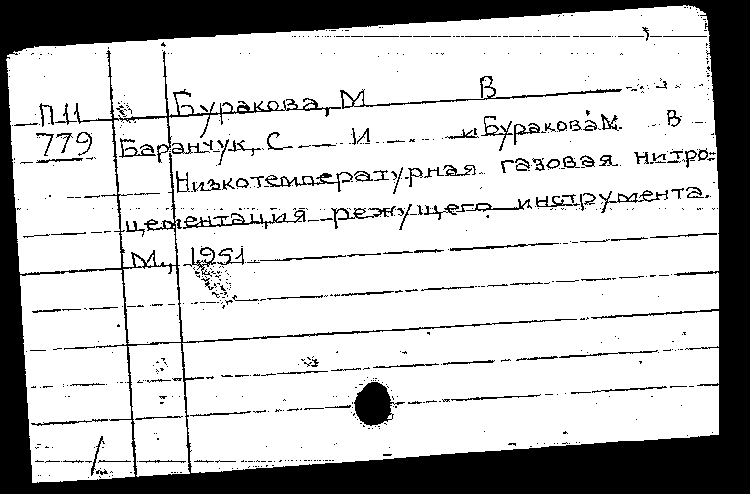 П11 Буракова, М В
779 Баранчук, С И и Буракова М. В
Низкотемпературная газовая нитро-
цементация режущего инструмента.
М., 1951